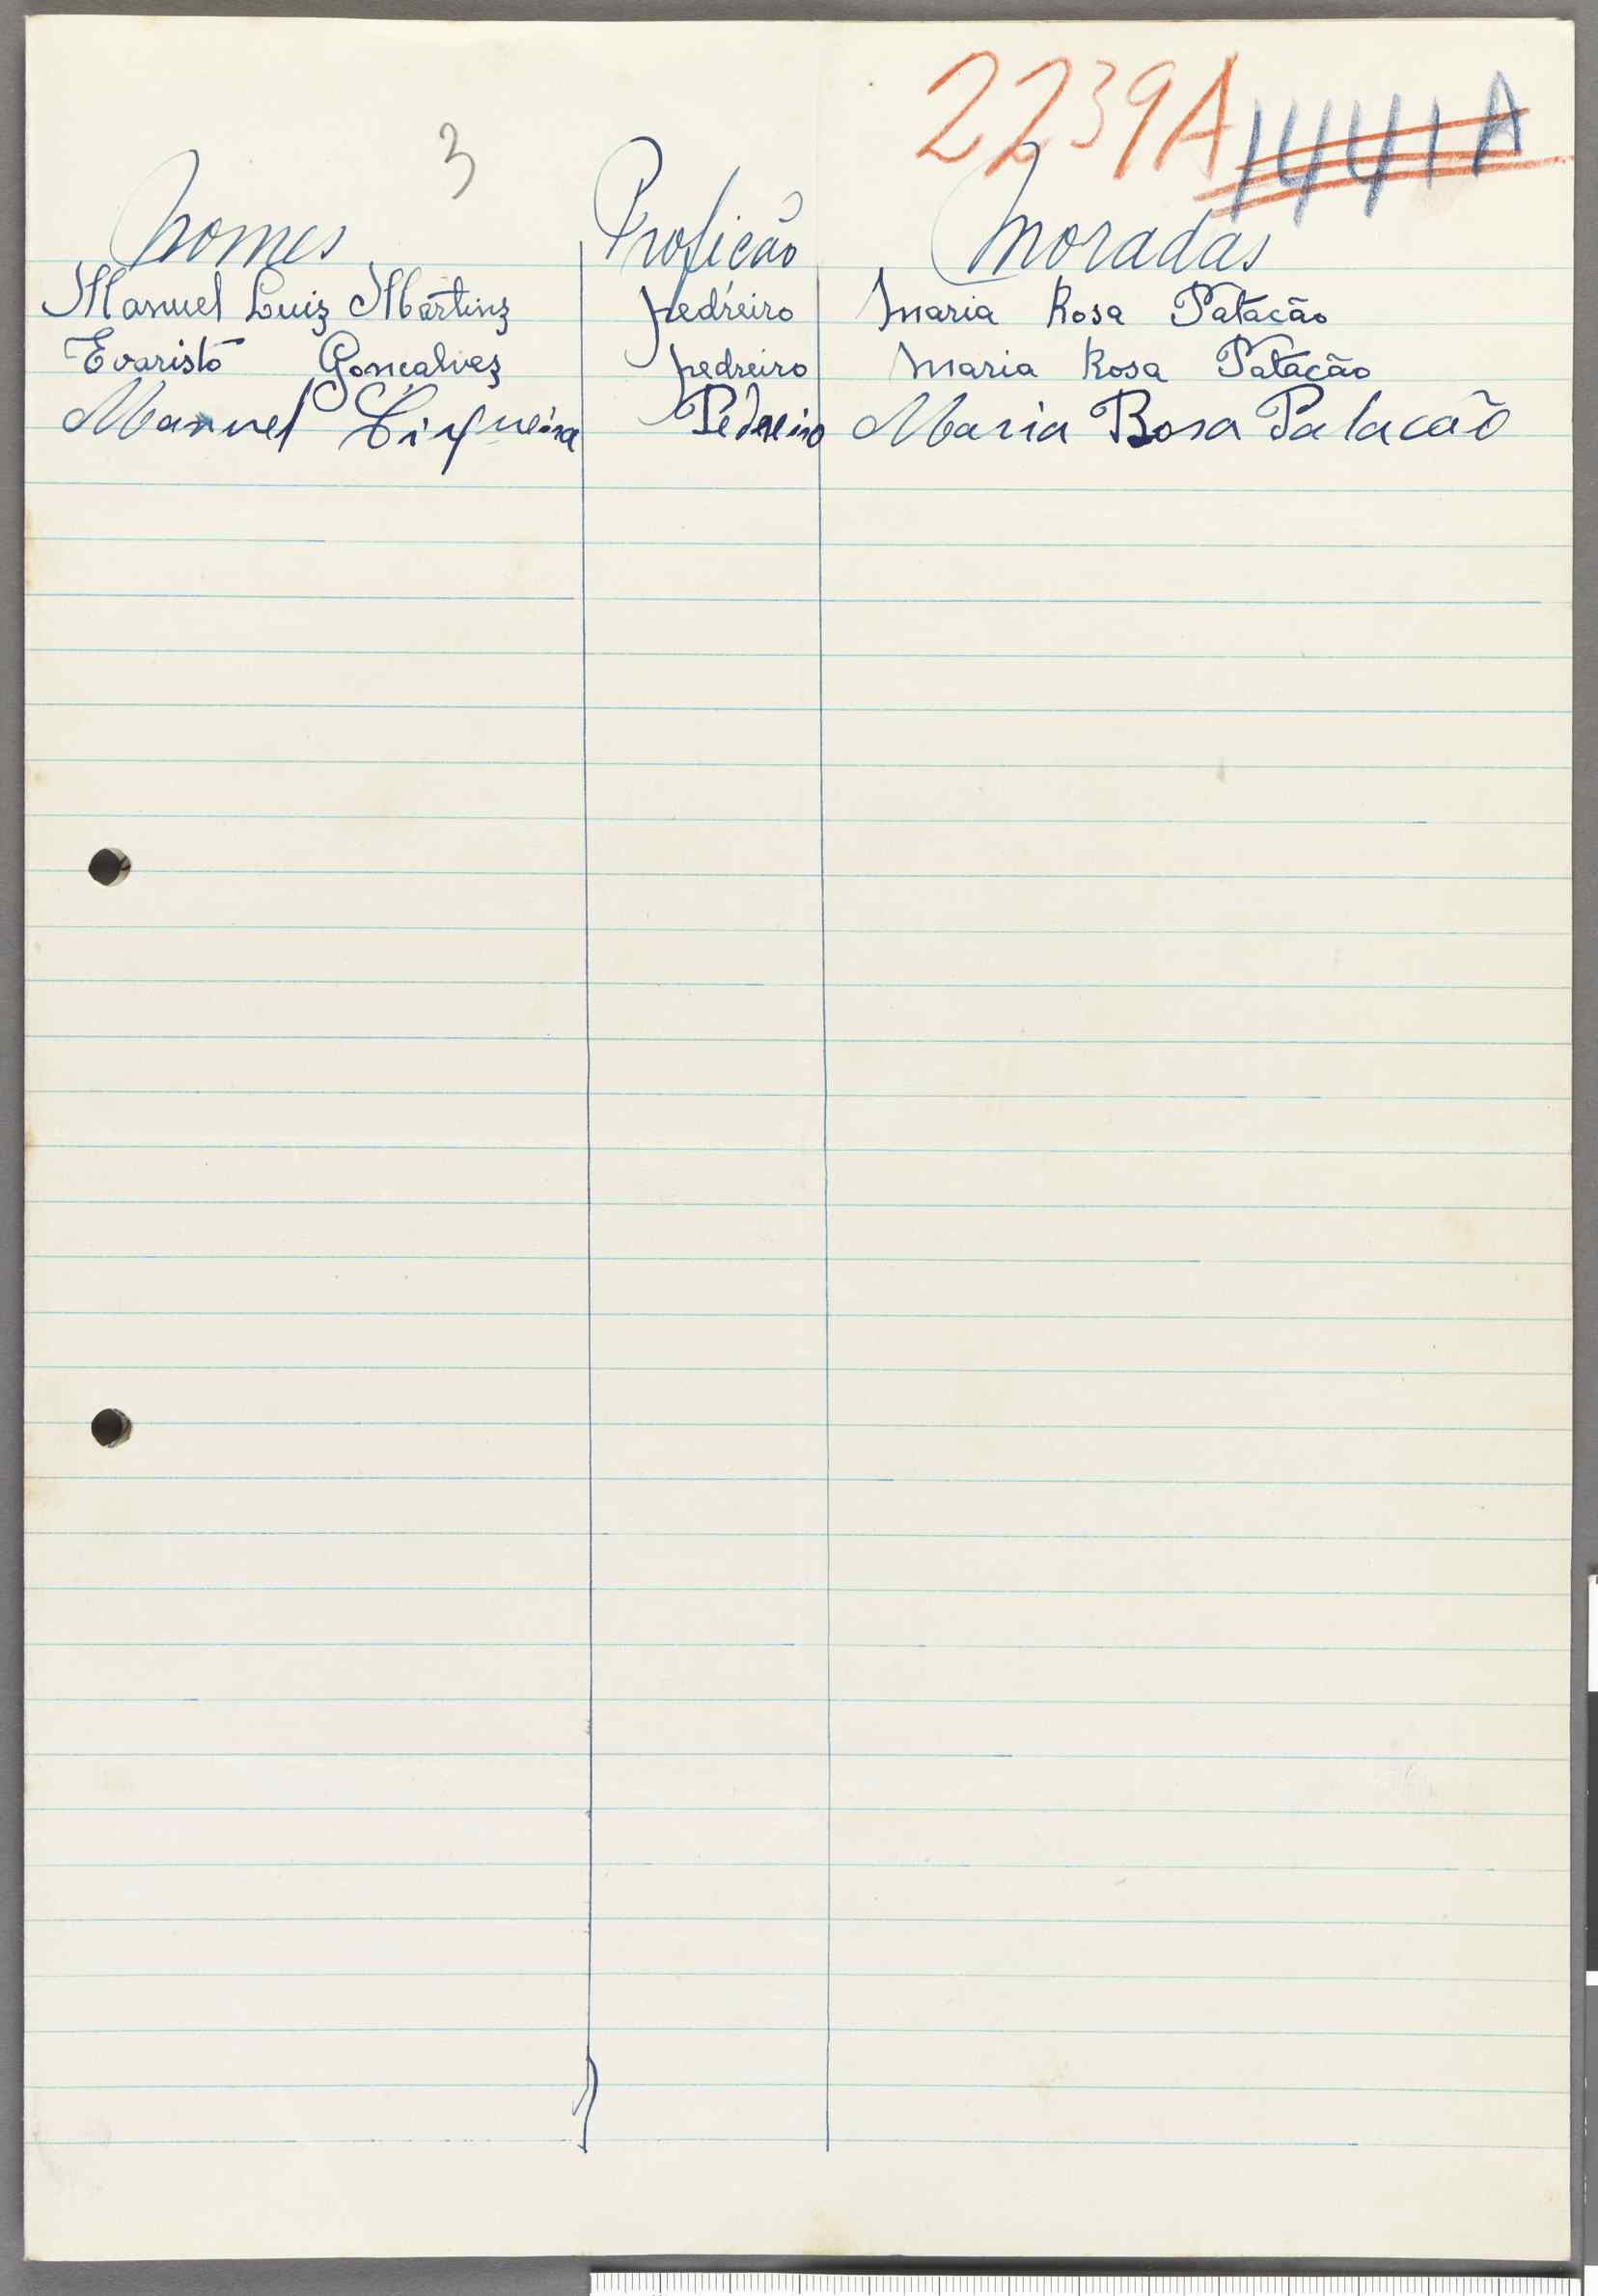 2239A 1441A
3
Nomes Proficão Moradas
Manuel Luiz Martinz pedreiro Maria Rosa Patacão
Evaristo Gonçalvez pedreiro Maria Rosa Patacão
Manuel Pedreiro Maria Rosa Patacão